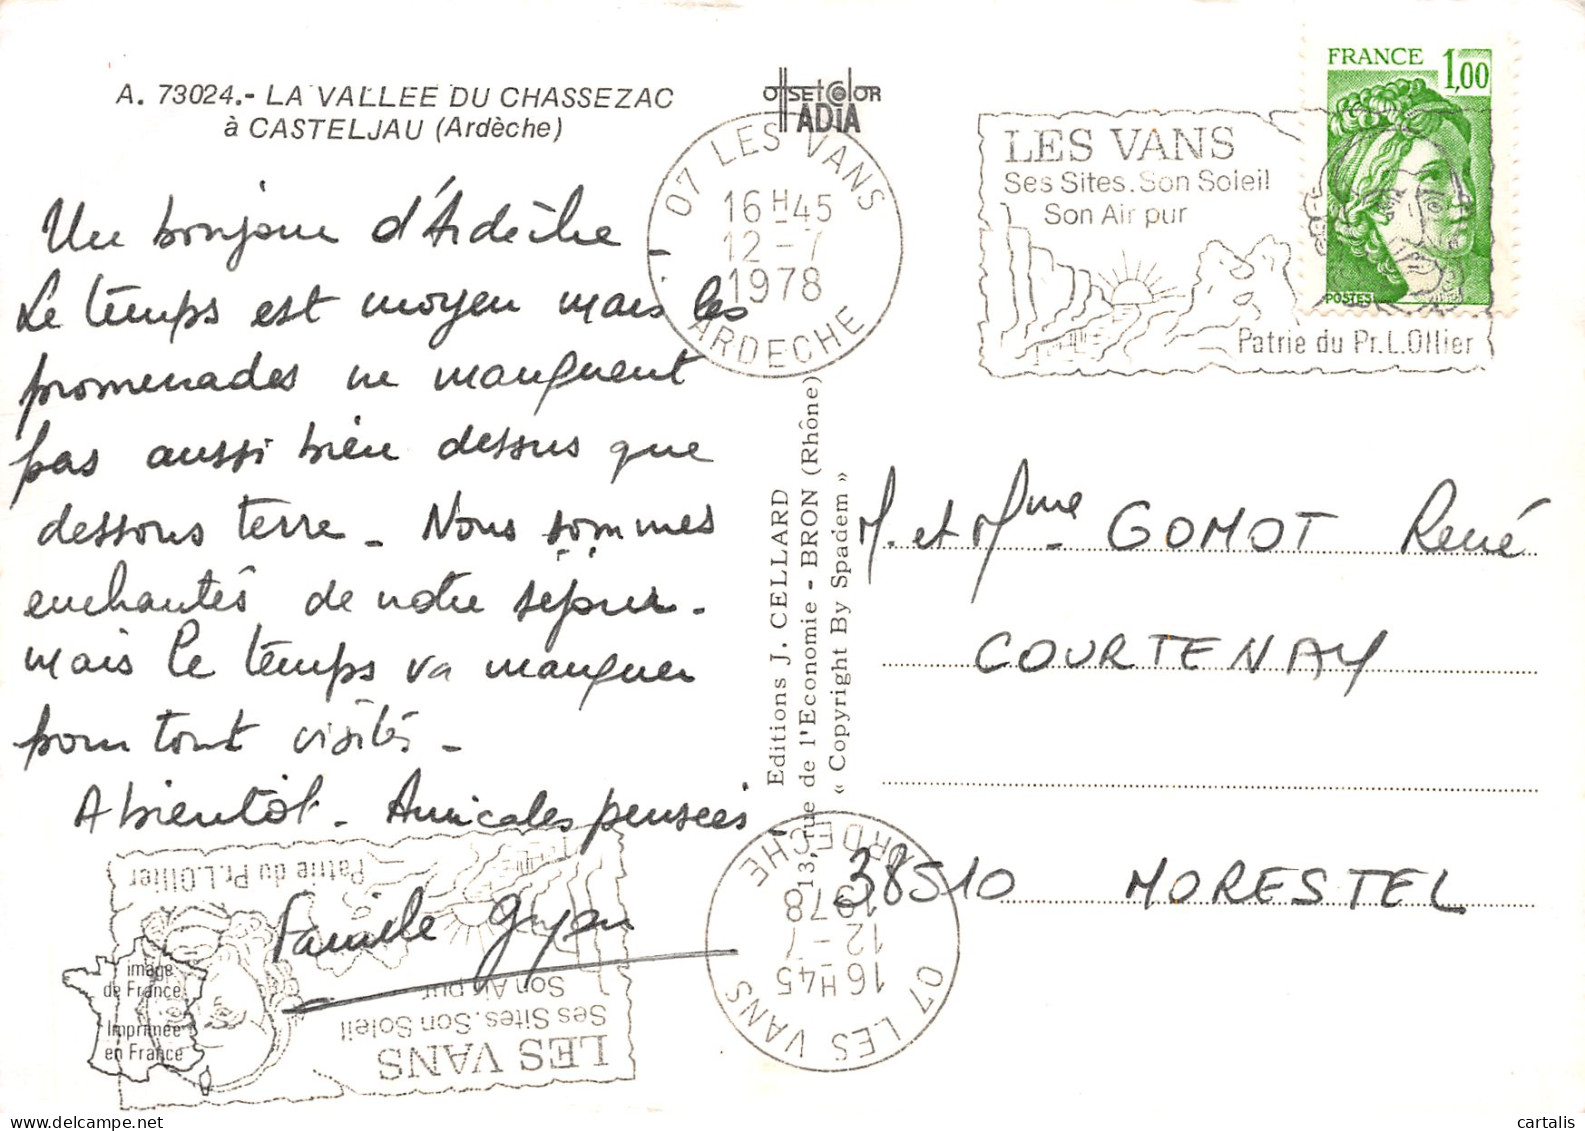 A. 73024.- LA VALLEE DU CHASSEZAC
à CASTELJAU (Ardèche)
Un bonjour d'Ardèche -
Le temps est moyen mais les
promenades ne manquent
pas aussi bien dessus que
dessous terre - Nous sommes
enchantés de notre séjour -
mais le temps va manquer
pour tout visiter -
A bientôt - Amicales pensées -
Famille
image
de France
Imprimée
en France
OffSET COLOR
IADIA
07 LES VANS
16 H 45
12 - 7
1978
ARDECHE
LES VANS
Ses Sites. Son Soleil
Son Air pur
Patrie du Pr. L. Ollier
FRANCE 1,00
POSTES
Editions J. CELLARD
13, rue de l'Economie - BRON (Rhône)
« Copyright By Spadem »
M. et Mme GOMOT René
COURTENAY
38510 MORESTEL
07 LES VANS
16 H 45
12 - 7
1978
ARDECHE
LES VANS
Ses Sites. Son Soleil
Son Air pur
Patrie du Pr. L. Ollier
cartalis
delcampe.net